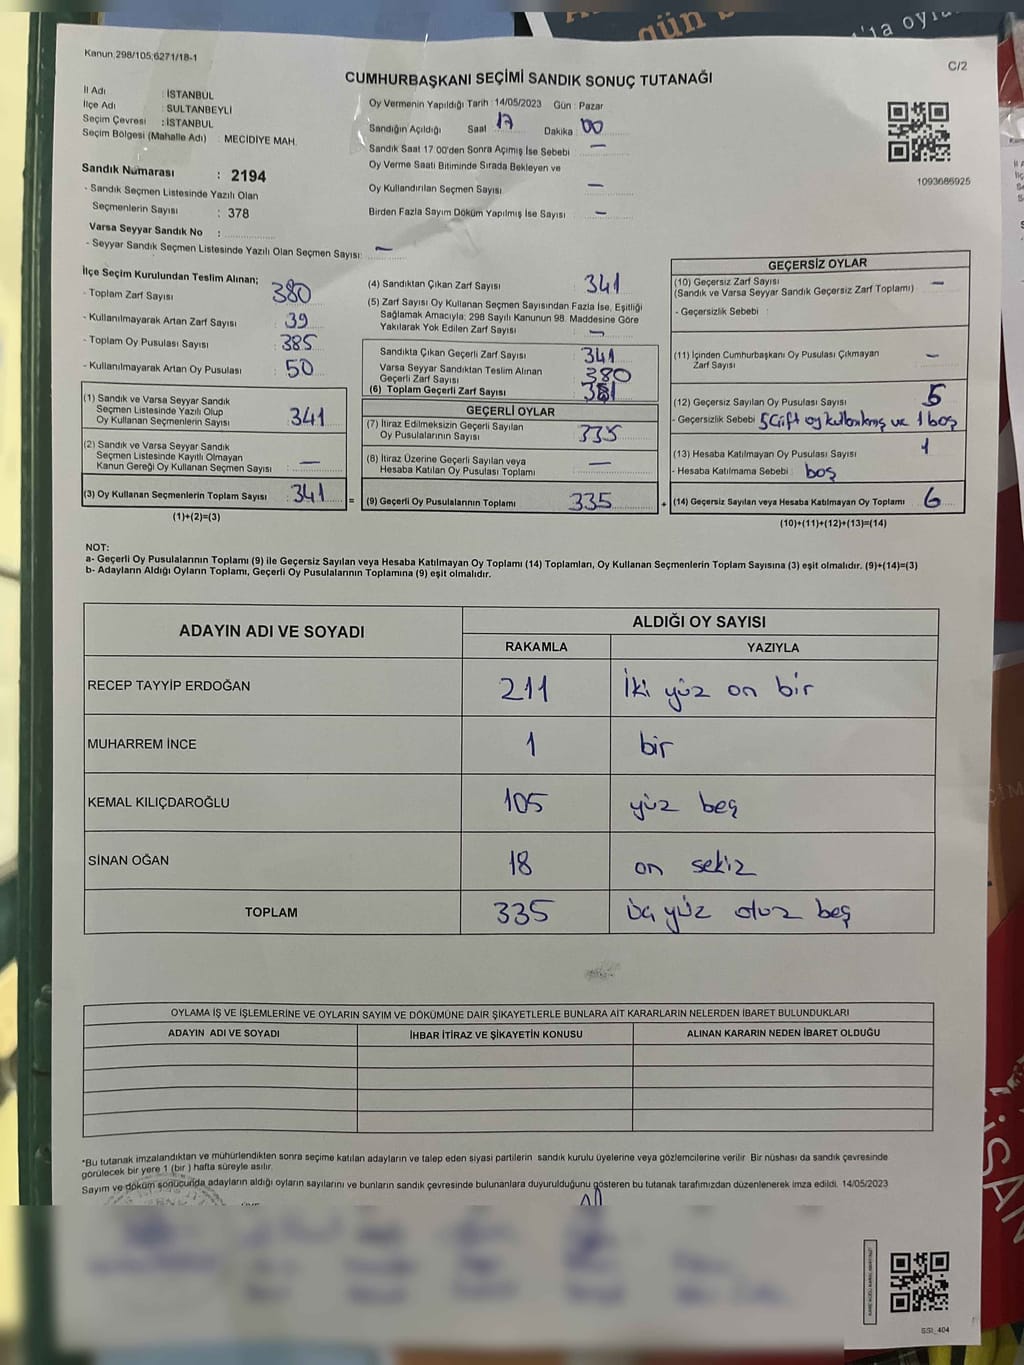 gün
'ta oylu
Kanun.298/105;6271/18-1
C/2
CUMHURBAŞKANI SEÇİMİ SANDIK SONUÇ TUTANAĞI
İl Adı : İSTANBUL
İlçe Adı : SULTANBEYLİ
Seçim Çevresi : İSTANBUL
Seçim Bölgesi (Mahalle Adı) : MECİDİYE MAH.
Oy Vermenin Yapıldığı Tarih : 14/05/2023 Gün : Pazar
Sandığın Açıldığı Saat 17 Dakika : 00
Sandık Saat 17:00'den Sonra Açımış İse Sebebi —
Oy Verme Saati Bitiminde Sırada Bekleyen ve
Oy Kullandırılan Seçmen Sayısı —
Birden Fazla Sayım Döküm Yapılmış İse Sayısı —
1093686925
Sandık Numarası : 2194
- Sandık Seçmen Listesinde Yazılı Olan
Seçmenlerin Sayısı : 378
Varsa Seyyar Sandık No :
- Seyyar Sandık Seçmen Listesinde Yazılı Olan Seçmen Sayısı: —
İlçe Seçim Kurulundan Teslim Alınan;
- Toplam Zarf Sayısı : 380
- Kullanılmayarak Artan Zarf Sayısı : 39
- Toplam Oy Pusulası Sayısı : 385
- Kullanılmayarak Artan Oy Pusulası : 50
(1) Sandık ve Varsa Seyyar Sandık
Seçmen Listesinde Yazılı Olup
Oy Kullanan Seçmenlerin Sayısı : 341
(2) Sandık ve Varsa Seyyar Sandık
Seçmen Listesinde Kayıtlı Olmayan
Kanun Gereği Oy Kullanan Seçmen Sayısı : —
(3) Oy Kullanan Seçmenlerin Toplam Sayısı : 341 =
(1)+(2)=(3)
(4) Sandıktan Çıkan Zarf Sayısı 341
(5) Zarf Sayısı Oy Kullanan Seçmen Sayısından Fazla İse, Eşitliği
Sağlamak Amacıyla; 298 Sayılı Kanunun 98. Maddesine Göre
Yakılarak Yok Edilen Zarf Sayısı —
Sandıkta Çıkan Geçerli Zarf Sayısı : 341
Varsa Seyyar Sandıktan Teslim Alınan
Geçerli Zarf Sayısı : 380
(6) Toplam Geçerli Zarf Sayısı
GEÇERLİ OYLAR
(7) İtiraz Edilmeksizin Geçerli Sayılan
Oy Pusulalarının Sayısı : 335
(8) İtiraz Üzerine Geçerli Sayılan veya
Hesaba Katılan Oy Pusulası Toplamı : —
(9) Geçerli Oy Pusulalarının Toplamı 335 +
GEÇERSİZ OYLAR
(10) Geçersiz Zarf Sayısı
(Sandık ve Varsa Seyyar Sandık Geçersiz Zarf Toplamı) : —
- Geçersizlik Sebebi :
(11) İçinden Cumhurbaşkanı Oy Pusulası Çıkmayan
Zarf Sayısı : —
(12) Geçersiz Sayılan Oy Pusulası Sayısı : 5
- Geçersizlik Sebebi 5 Çift oy kullanılmış ve 1 boş
(13) Hesaba Katılmayan Oy Pusulası Sayısı 1
- Hesaba Katılmama Sebebi : boş
(14) Geçersiz Sayılan veya Hesaba Katılmayan Oy Toplamı 6
(10)+(11)+(12)+(13)=(14)
NOT:
a- Geçerli Oy Pusulalarının Toplamı (9) ile Geçersiz Sayılan veya Hesaba Katılmayan Oy Toplamı (14) Toplamları, Oy Kullanan Seçmenlerin Toplam Sayısına (3) eşit olmalıdır. (9)+(14)=(3)
b- Adayların Aldığı Oyların Toplamı, Geçerli Oy Pusulalarının Toplamına (9) eşit olmalıdır.
ADAYIN ADI VE SOYADI ALDIĞI OY SAYISI
RAKAMLA YAZIYLA
RECEP TAYYİP ERDOĞAN 211 İki yüz on bir
MUHARREM İNCE 1 bir
KEMAL KILIÇDAROĞLU 105 yüz beş
SİNAN OĞAN 18 on sekiz
TOPLAM 335 üç yüz otuz beş
OYLAMA İŞ VE İŞLEMLERİNE VE OYLARIN SAYIM VE DÖKÜMÜNE DAİR ŞİKAYETLERLE BUNLARA AİT KARARLARIN NELERDEN İBARET BULUNDUKLARI
ADAYIN ADI VE SOYADI İHBAR İTİRAZ VE ŞİKAYETİN KONUSU ALINAN KARARIN NEDEN İBARET OLDUĞU
*Bu tutanak imzalandıktan ve mühürlendikten sonra seçime katılan adayların ve talep eden siyasi partilerin sandık kurulu üyelerine veya gözlemcilerine verilir. Bir nüshası da sandık çevresinde
görülecek bir yere 1 (bir ) hafta süreyle asılır.
Sayım ve döküm sonucunda adayların aldığı oyların sayılarını ve bunların sandık çevresinde bulunanlara duyurulduğunu gösteren bu tutanak tarafımızdan düzenlenerek imza edildi. 14/05/2023
SSI_404